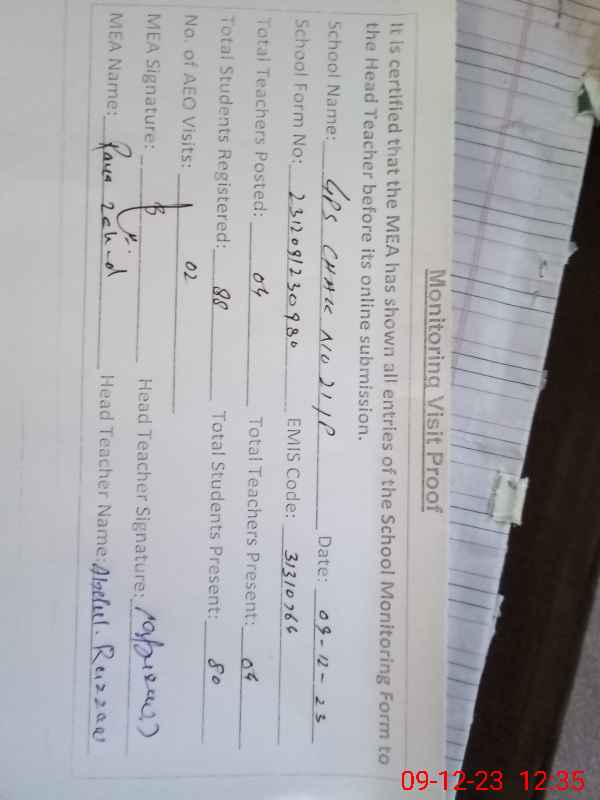 Monitoring Visit Proof
It is certified that the MEA has shown all entries of the School Monitoring Form to
the Head Teacher before its online submission.
School Name: GPS CHAK NO 21/P Date: 09-12-23
School Form No: 2312091230980 EMIS Code: 31310766
Total Teachers Posted: 04 Total Teachers Present: 04
Total Students Registered: 88 Total Students Present: 80
No. of AEO Visits: 02
MEA Signature: Head Teacher Signature:
MEA Name: Rana Zahid Head Teacher Name: Abdul. Razzaq
09-12-23 12:35